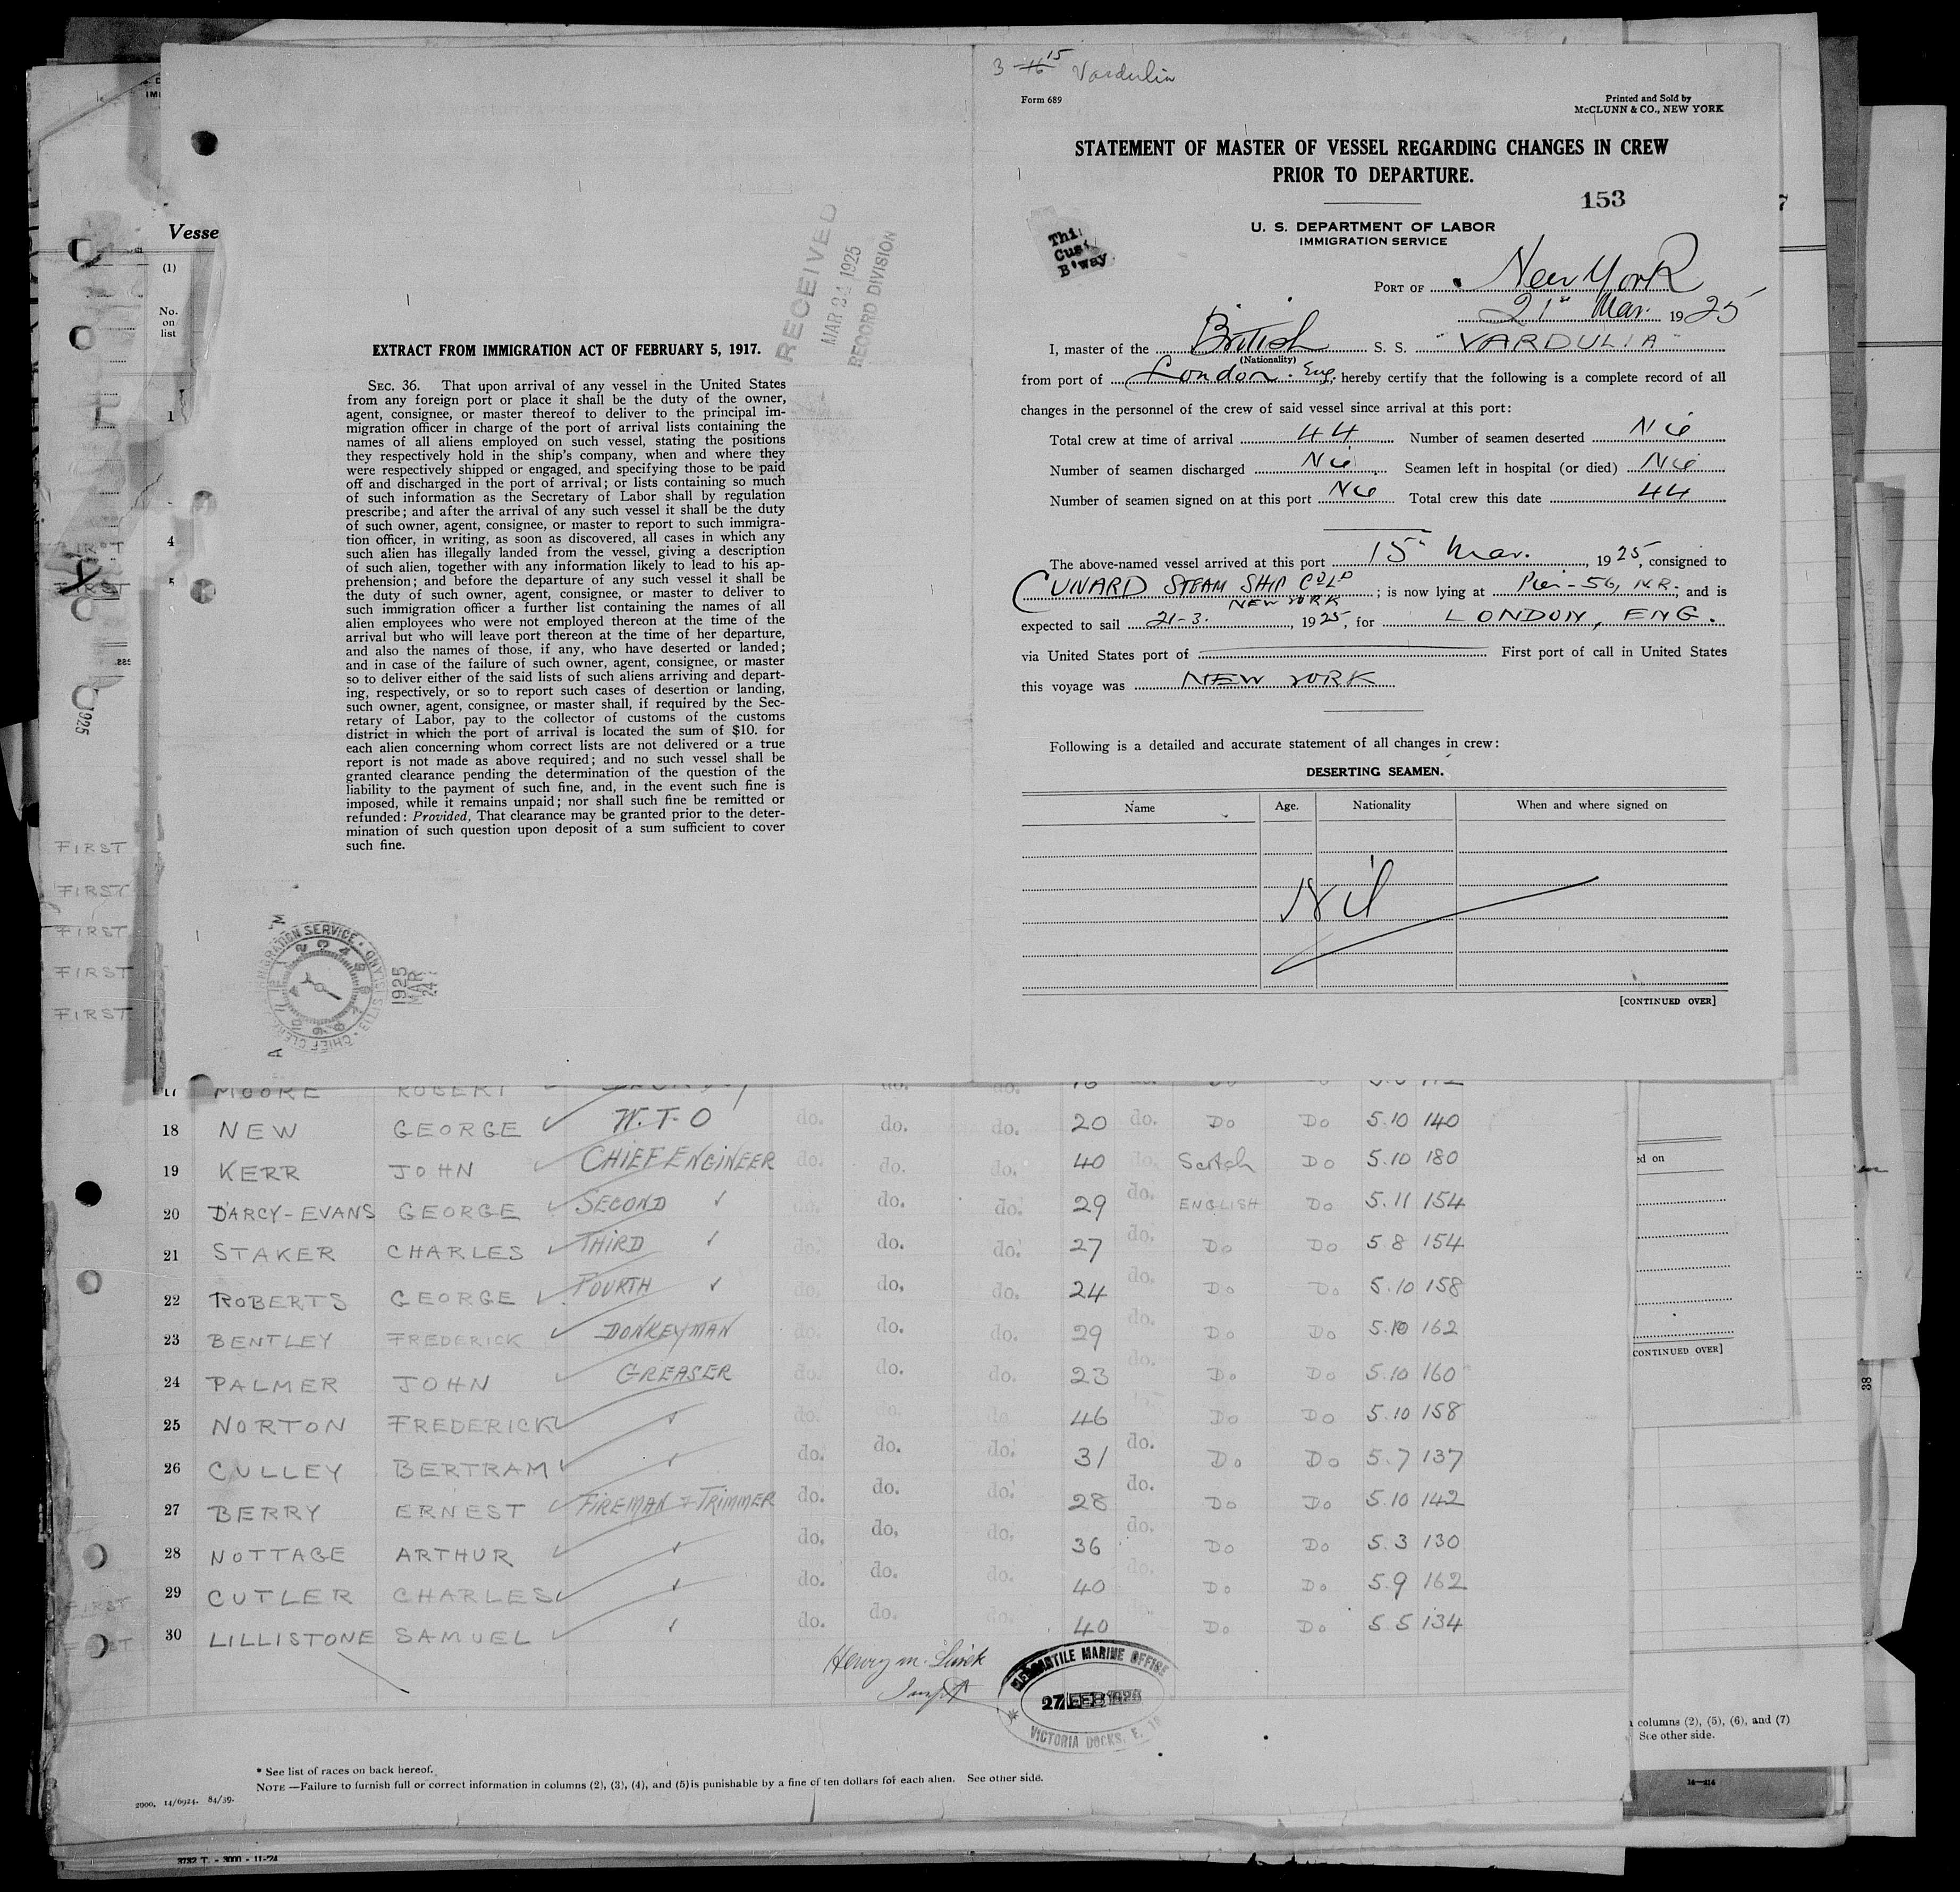 3 - 16 15 Vardulia
Form 689
Printed and Sold by
McCLUNN & CO., NEW YORK
STATEMENT OF MASTER OF VESSEL REGARDING CHANGES IN CREW
PRIOR TO DEPARTURE.
153
U. S. DEPARTMENT OF LABOR
IMMIGRATION SERVICE
Thi
Cus
B'way
PORT OF New York
21st Mar. 1925
I, master of the British S. S. "VARDULIA"
(Nationality)
from port of London. Eng. hereby certify that the following is a complete record of all
changes in the personnel of the crew of said vessel since arrival at this port:
Total crew at time of arrival 44 Number of seamen deserted Nil
Number of seamen discharged Nil Seamen left in hospital (or died) Nil
Number of seamen signed on at this port Nil Total crew this date 44
The above-named vessel arrived at this port 15th Mar. , 1925, consigned to
CUNARD STEAM SHIP Co LD ; is now lying at Pier-56, N.R. ; and is
NEW YORK
expected to sail 21-3. , 1925, for LONDON, ENG.
via United States port of First port of call in United States
this voyage was NEW YORK
Following is a detailed and accurate statement of all changes in crew:
DESERTING SEAMEN.
Name Age. Nationality When and where signed on
Nil
[CONTINUED OVER]
RECEIVED
MAR 24 1925
RECORD DIVISION
EXTRACT FROM IMMIGRATION ACT OF FEBRUARY 5, 1917.
SEC. 36. That upon arrival of any vessel in the United States
from any foreign port or place it shall be the duty of the owner,
agent, consignee, or master thereof to deliver to the principal im-
migration officer in charge of the port of arrival lists containing the
names of all aliens employed on such vessel, stating the positions
they respectively hold in the ship's company, when and where they
were respectively shipped or engaged, and specifying those to be paid
off and discharged in the port of arrival; or lists containing so much
of such information as the Secretary of Labor shall by regulation
prescribe; and after the arrival of any such vessel it shall be the duty
of such owner, agent, consignee, or master to report to such immigra-
tion officer, in writing, as soon as discovered, all cases in which any
such alien has illegally landed from the vessel, giving a description
of such alien, together with any information likely to lead to his ap-
prehension; and before the departure of any such vessel it shall be
the duty of such owner, agent, consignee, or master to deliver to
such immigration officer a further list containing the names of all
alien employees who were not employed thereon at the time of the
arrival but who will leave port thereon at the time of her departure,
and also the names of those, if any, who have deserted or landed;
and in case of the failure of such owner, agent, consignee, or master
so to deliver either of the said lists of such aliens arriving and depart-
ing, respectively, or so to report such cases of desertion or landing,
such owner, agent, consignee, or master shall, if required by the Sec-
retary of Labor, pay to the collector of customs of the customs
district in which the port of arrival is located the sum of $10. for
each alien concerning whom correct lists are not delivered or a true
report is not made as above required; and no such vessel shall be
granted clearance pending the determination of the question of the
liability to the payment of such fine, and, in the event such fine is
imposed, while it remains unpaid; nor shall such fine be remitted or
refunded: Provided, That clearance may be granted prior to the deter-
mination of such question upon deposit of a sum sufficient to cover
such fine.
IMMIGRATION SERVICE • ELLIS ISLAND • CHIEF CLERK
1925
MAR
24
Vesse
(1)
No.
on
list
1
4
5
1925
FIRST
FIRST
FIRST
FIRST
FIRST
17 MOORE ROBERT
18 NEW GEORGE W.T.O do. do. do. 20 do. Do Do 5.10 140
19 KERR JOHN CHIEF ENGINEER do. do. do. 40 do. Scotch Do 5.10 180
20 D'ARCY-EVANS GEORGE SECOND do. do. do. 29 do. ENGLISH Do 5.11 154
21 STAKER CHARLES THIRD do. do. do. 27 do. Do Do 5 8 154
22 ROBERTS GEORGE FOURTH do. do. do. 24 do. Do Do 5.10 158
23 BENTLEY FREDERICK DONKEYMAN do. do. do. 29 do. Do Do 5.10 162
24 PALMER JOHN GREASER do. do. do. 23 do. Do Do 5.10 160
25 NORTON FREDERICK do. do. do. 46 do. Do Do 5.10 158
26 CULLEY BERTRAM do. do. do. 31 do. Do Do 5.7 137
27 BERRY ERNEST FIREMAN & TRIMMER do. do. do. 28 do. Do Do 5.10 142
28 NOTTAGE ARTHUR do. do. do. 36 do. Do Do 5.3 130
29 CUTLER CHARLES do. do. do. 40 do. Do Do 5.9 162
30 LILLISTONE SAMUEL do. do. do. 40 do. Do Do 5 5 134
Henry M.
MERCANTILE MARINE OFFICE
27 FEB 1925
VICTORIA DOCKS, E. 16
* See list of races on back hereof.
NOTE—Failure to furnish full or correct information in columns (2), (3), (4), and (5) is punishable by a fine of ten dollars for each alien. See other side.
2000, 14/6924. 84/39.
3732 T. - 3000 - 11-'24
ed on
CONTINUED OVER]
38
columns (2), (5), (6), and (7)
See other side.